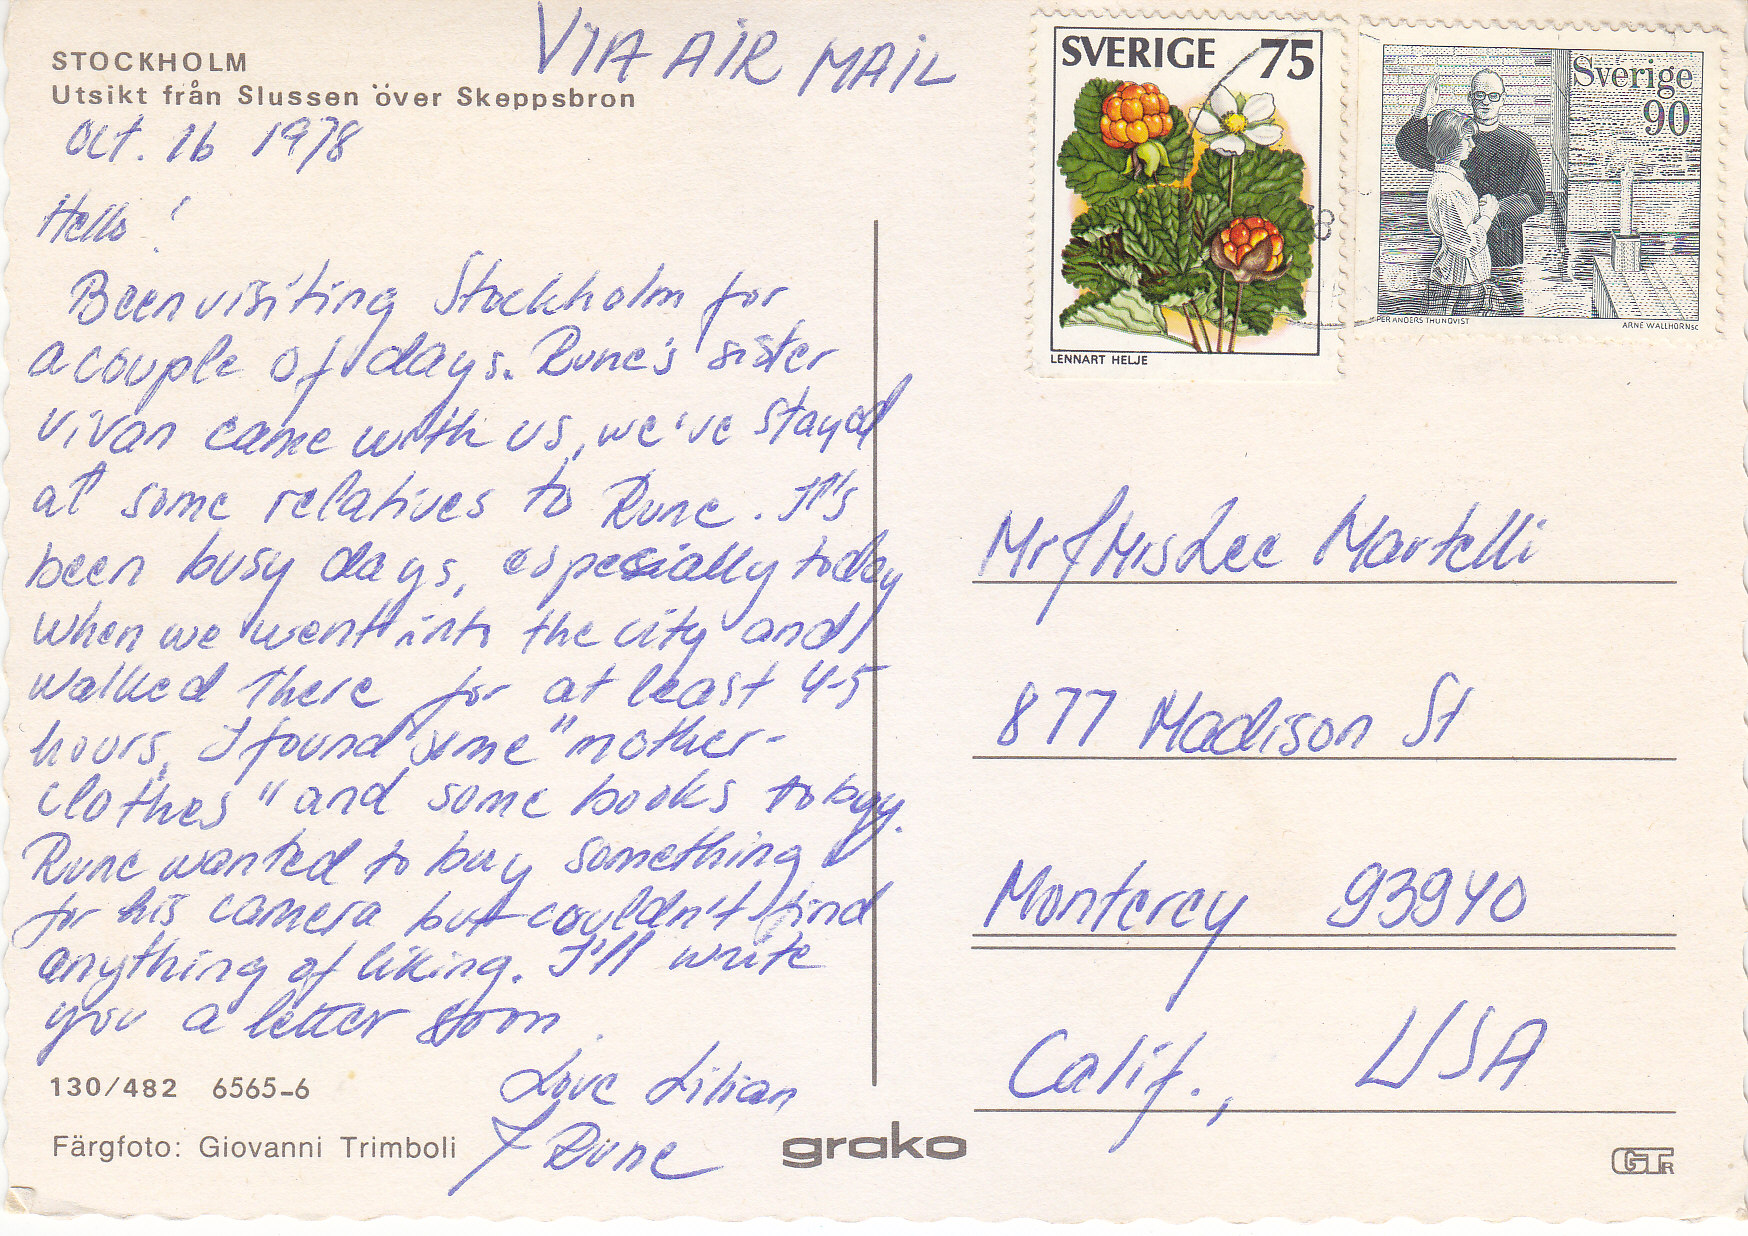 VIA AIR MAIL
STOCKHOLM
Utsikt från Slussen över Skeppsbron
Oct. 16 1978
Hello!
Been visiting Stockholm for
a couple of days. Rune's sister
Vivan came with us, we've stayed
at some relatives to Rune. It's
been busy days, especially today
when we went into the city and
walked there for at least 4-5
hours. I found some "mother-
clothes" and some books to buy.
Rune wanted to buy something
for his camera but couldn't find
anything of liking. I'll write
you a letter soon.
Love Lilian
& Rune
130/482 6565-6
Färgfoto: Giovanni Trimboli
grako
SVERIGE 75
LENNART HELJE
Sverige
90
PER ANDERS THUNQVIST ARNE WALLHORN SC
8
Mr & Mrs Lee Martelli
877 Madison St
Monterey 93940
Calif., USA
GTR